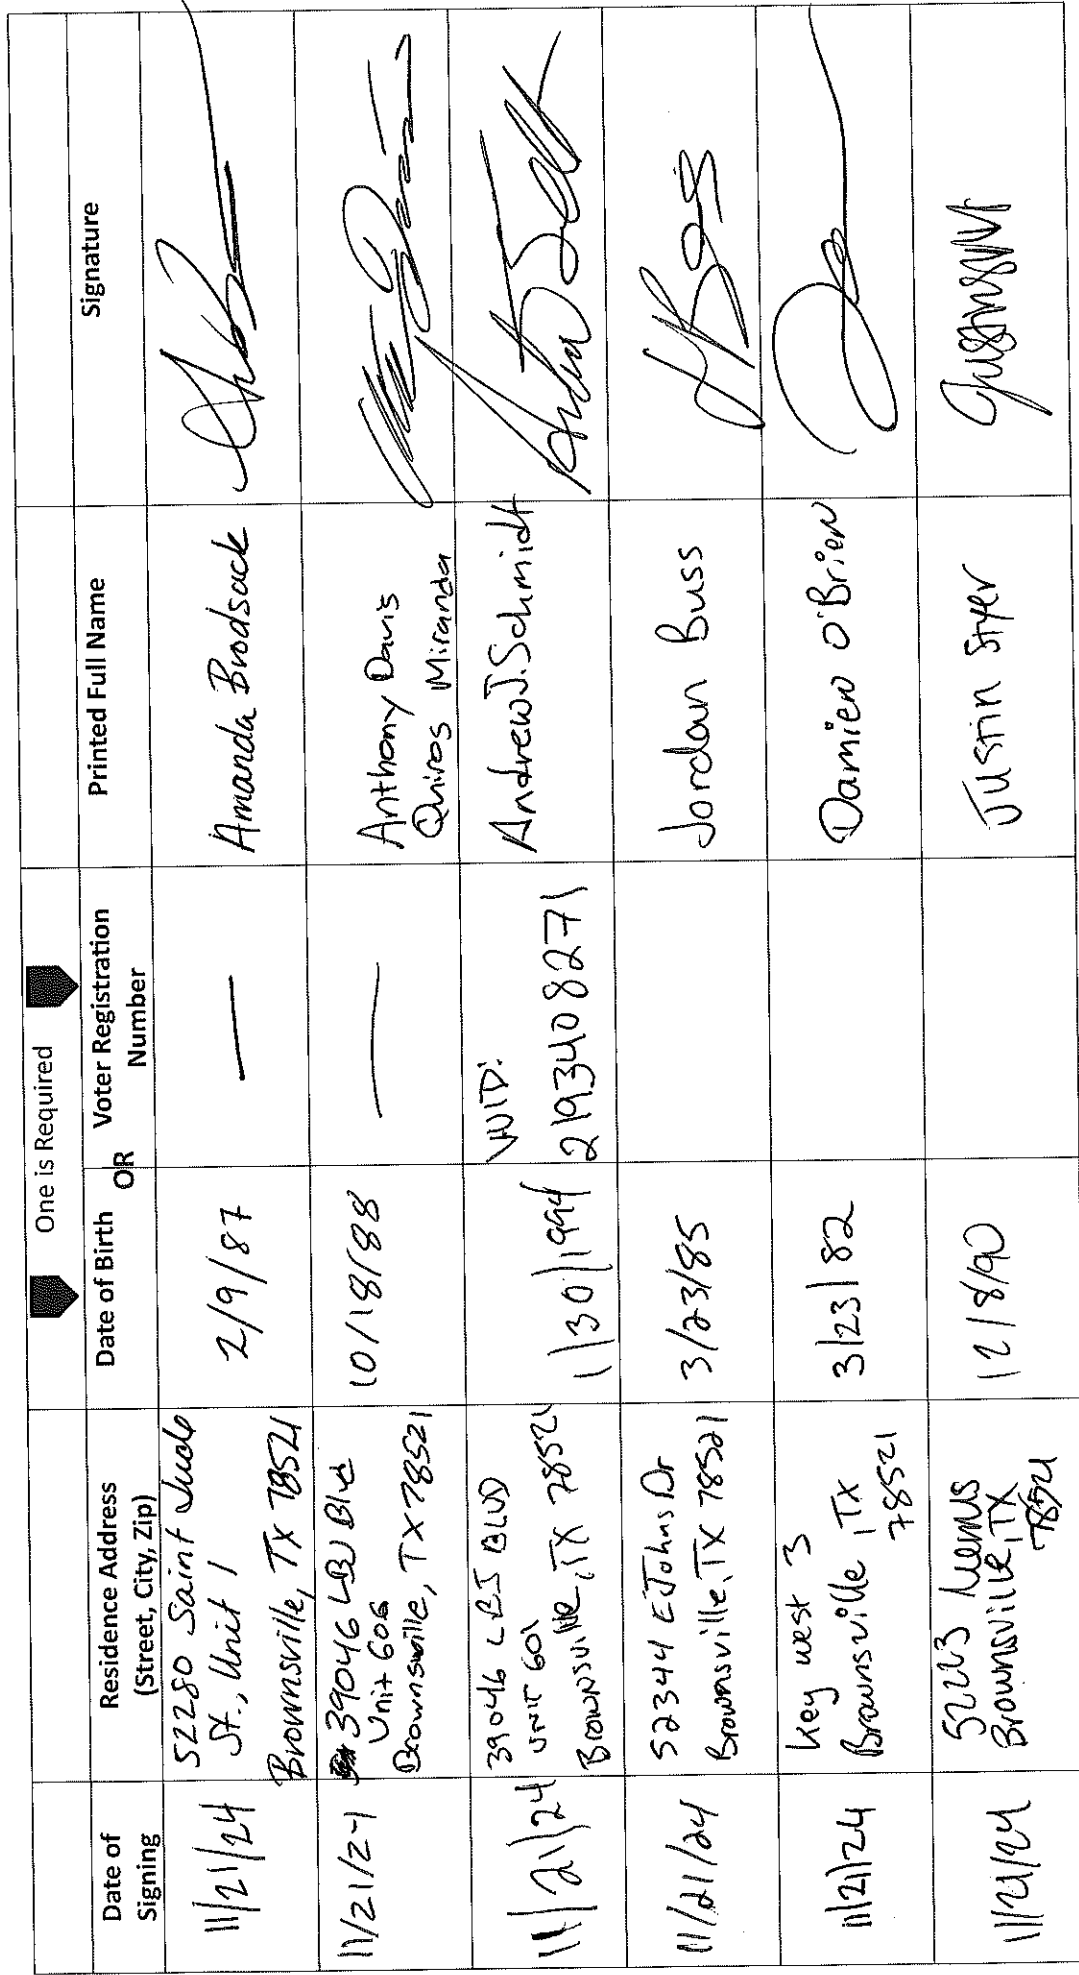 One is Required
Date of Signing
Residence Address (Street, City, Zip)
Date of Birth
OR
Voter Registration Number
Printed Full Name
Signature
11/21/24
52280 Saint Jude
St., Unit 1
Brownsville, TX 78521
2/9/87
—
Amanda Brodsack
11/21/24
39046 LBJ Blvd
Unit 606
Brownsville, TX 78521
10/18/88
—
Anthony Davis
Quiros Miranda
11/21/24
39046 LBJ BLVD
UNIT 601
BROWNSVILLE, TX 78521
11/30/1994
VUID:
2193408271
Andrew J. Schmidt
11/21/24
52344 E Johns Dr
Brownsville, TX 78521
3/23/85
Jordan Buss
11/21/24
Key west 3
Brownsville, TX
78521
3/23/82
Damien O'Brien
11/21/24
52223
Brownsville, TX
78521
12/8/90
Justin Styer